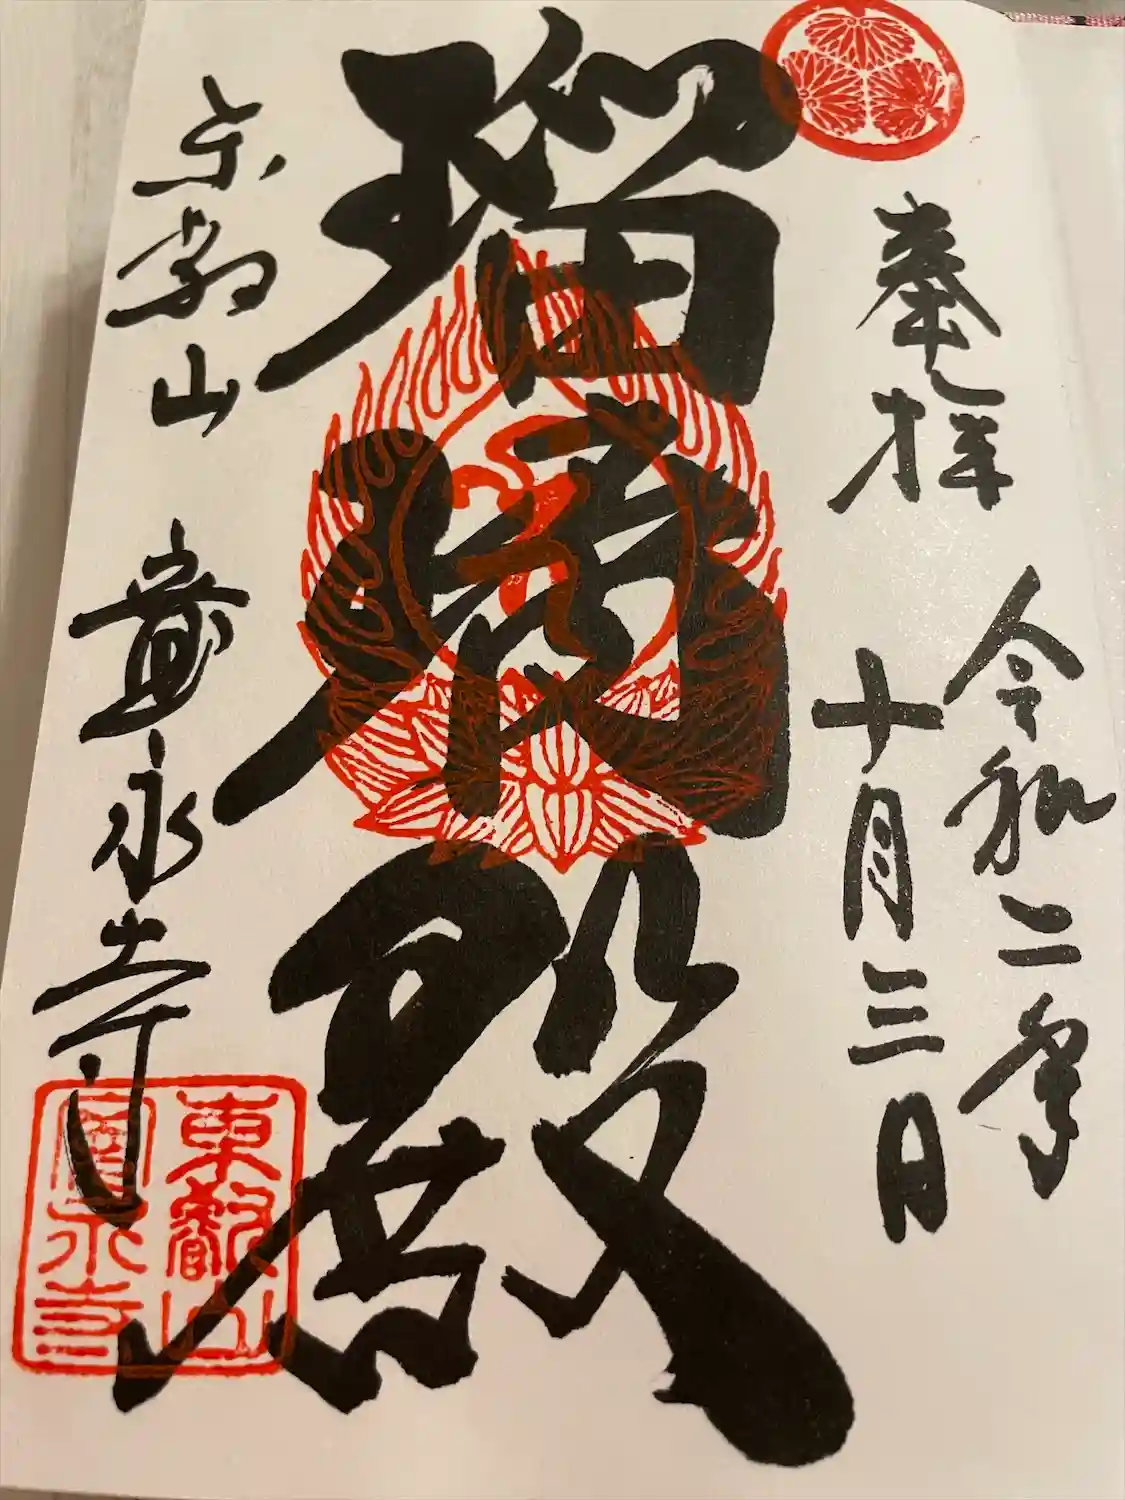 奉拝
令和二年
十月三日
瑠璃殿
東叡山 寛永寺
東叡山
寛永寺